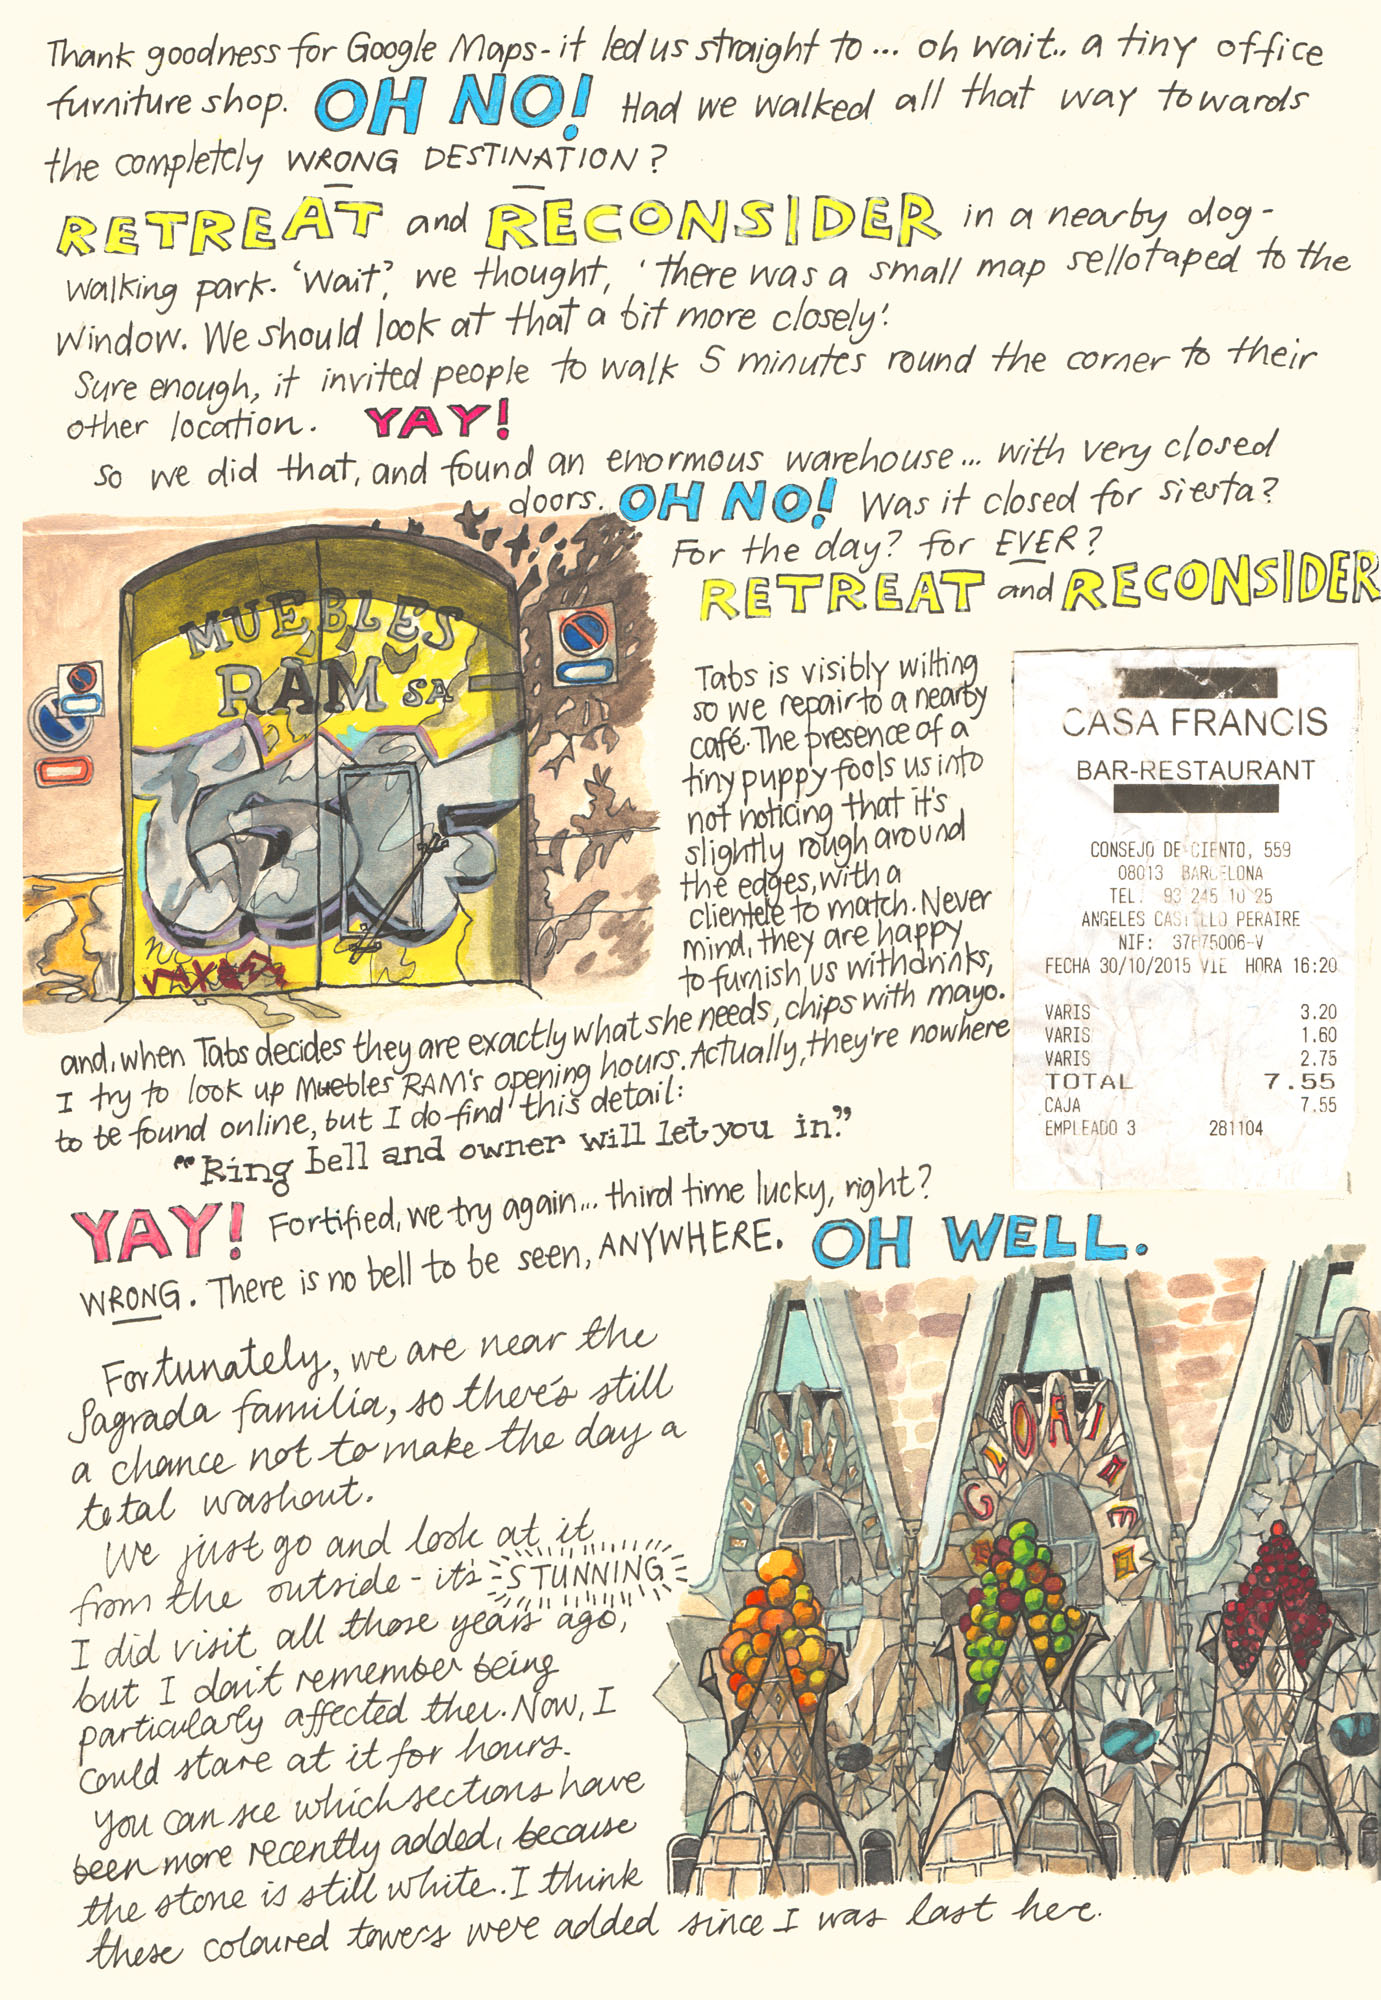 Thank goodness for Google Maps - it led us straight to... oh wait.. a tiny office
furniture shop. OH NO! Had we walked all that way towards
the completely WRONG DESTINATION?
RETREAT and RECONSIDER in a nearby dog-
walking park. 'Wait', we thought, 'there was a small map sellotaped to the
window. We should look at that a bit more closely'.
Sure enough, it invited people to walk 5 minutes round the corner to their
other location. YAY!
So we did that, and found an enormous warehouse... with very closed
doors. OH NO! Was it closed for siesta?
For the day? for EVER?
RETREAT and RECONSIDER
MUEBLES
RAM SA
Tabs is visibly wilting
so we repair to a nearby
café. The presence of a
tiny puppy fools us into
not noticing that it's
slightly rough around
the edges, with a
clientele to match. Never
mind, they are happy
to furnish us with drinks,
and, when Tabs decides they are exactly what she needs, chips with mayo.
I try to look up Muebles RAM's opening hours. Actually, they're nowhere
to be found online, but I do find this detail:
"Ring bell and owner will let you in."
CASA FRANCIS
BAR-RESTAURANT
CONSEJO DE CIENTO, 559
08013 BARCELONA
TEL. 93 245 10 25
ANGELES CASTILLO PERAIRE
NIF: 37675006-V
FECHA 30/10/2015 VIE HORA 16:20
VARIS 3.20
VARIS 1.60
VARIS 2.75
TOTAL 7.55
CAJA 7.55
EMPLEADO 3 281104
YAY! Fortified, we try again... third time lucky, right?
WRONG. There is no bell to be seen, ANYWHERE. OH WELL.
Fortunately, we are near the
Sagrada familia, so there's still
a chance not to make the day a
total washout.
We just go and look at it
from the outside - it's STUNNING
I did visit all those years ago,
but I don't remember being
particularly affected then. Now, I
could stare at it for hours.
You can see which sections have
been more recently added, because
the stone is still white. I think
these coloured towers were added since I was last here.
GLORIA